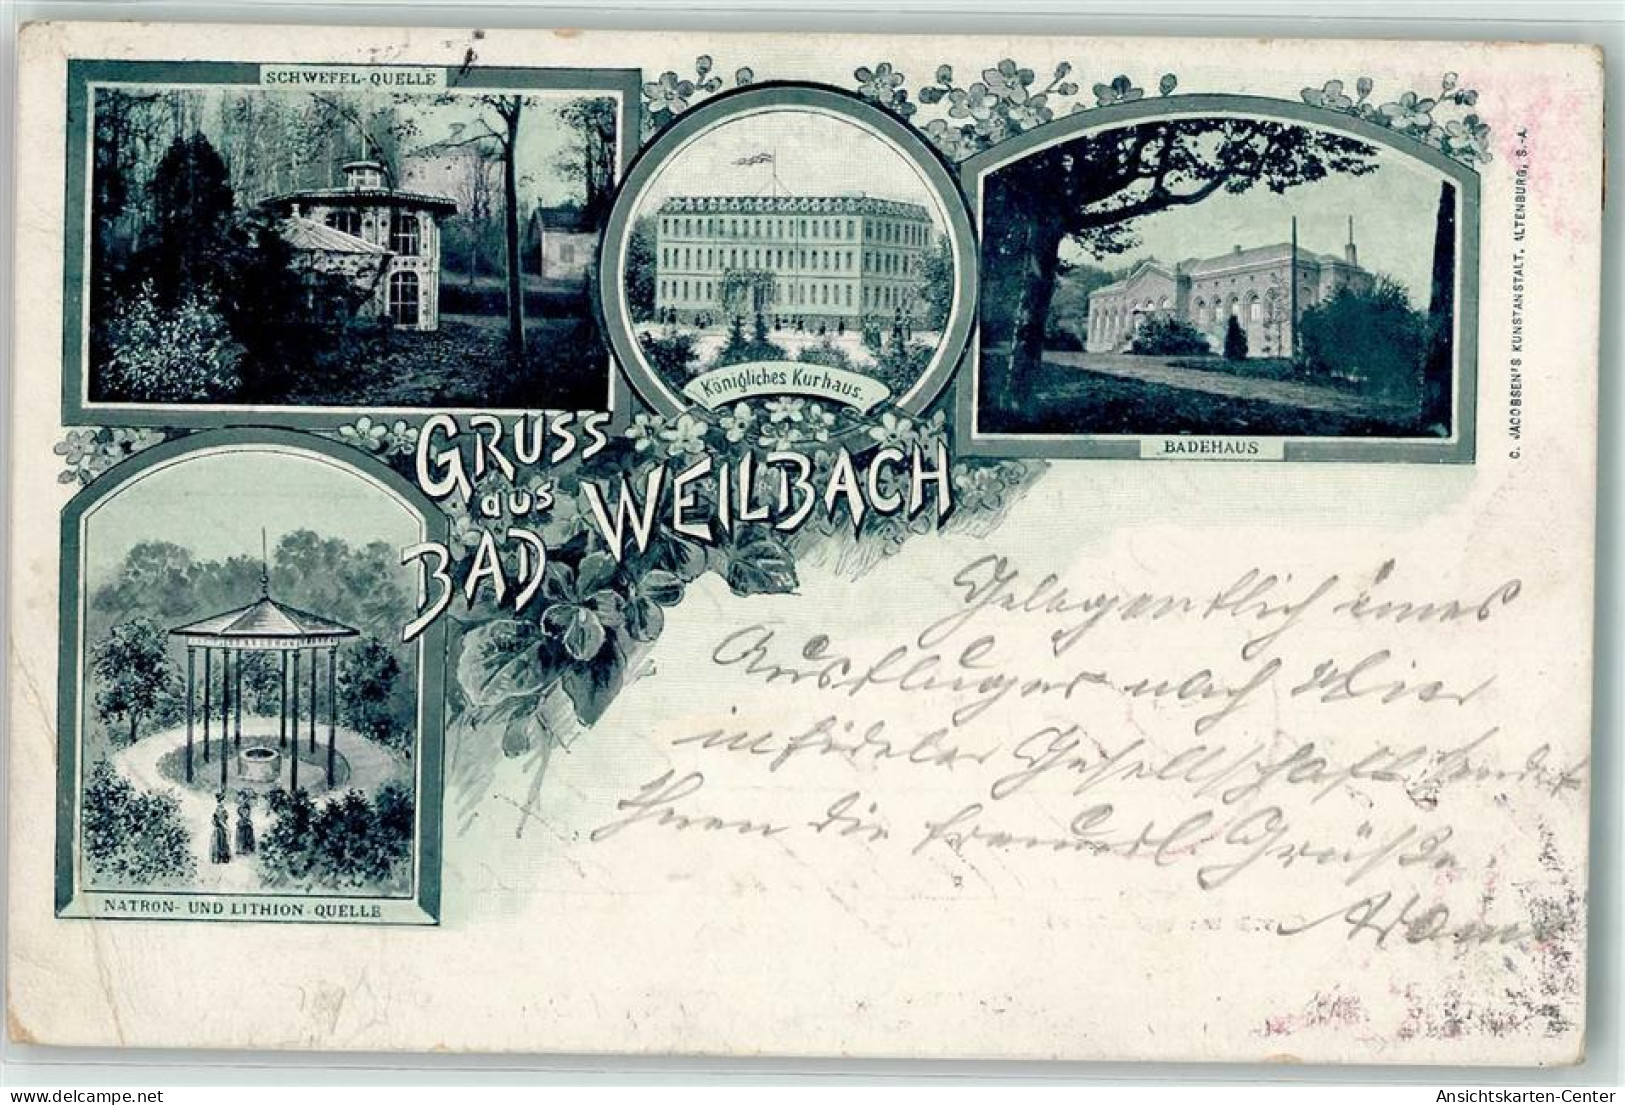 SCHWEFEL-QUELLE
Königliches Kurhaus.
BADEHAUS
C. JACOBSEN'S KUNSTANSTALT, ALTENBURG, S.-A.
GRUSS
aus
BAD WEILBACH
NATRON- UND LITHION-QUELLE
Gelegentlich eines
Ausfluges nach hier
in fideler Gesellschaft sendet
Ihnen die freundl. Grüße
AnsichtsKarten-Center